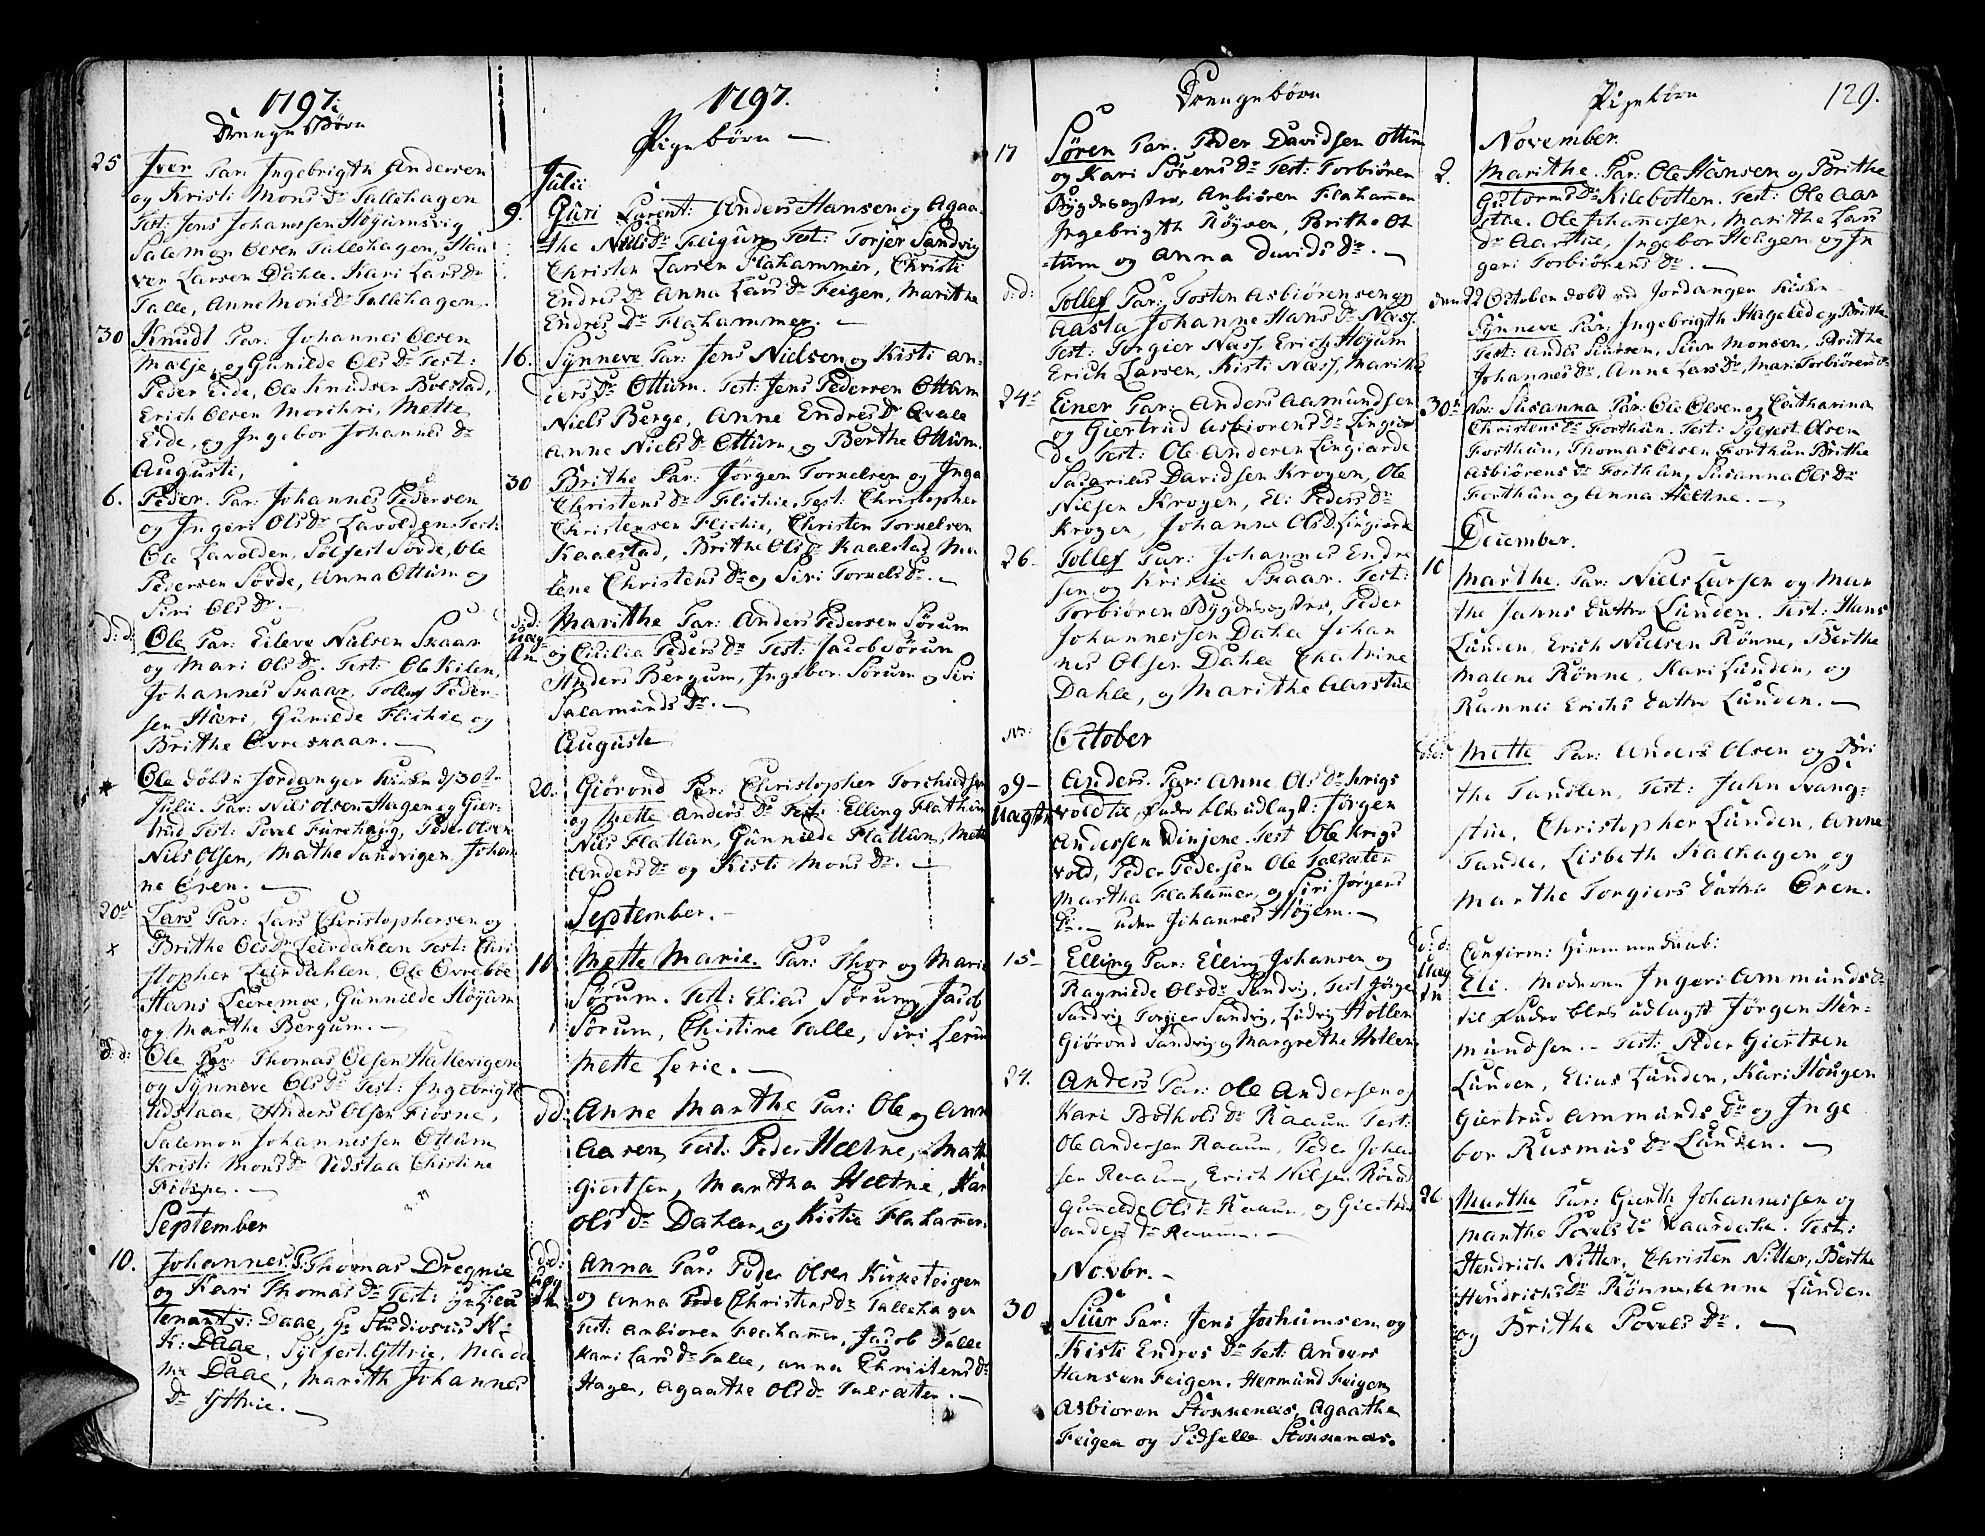 1797.
Drenge Børn
25 Iver Par: Ingebrigth Andersen
og Kristi Mons Dr Tallehagen
Test: Jens Johanssen Høyumsvig
Salemon Olsen Tallehagen,
ver Larsen Dahle. Kari Lars Dr
Talle, Anne Mons Dr Tallehagen,
30 Knudt Par: Johannes Olsen
Malje, og Gunilde Ols Dr Test:
Peder Eide, Ole Knudsen Bolstad,
Erich Olsen Morihri, Mette
Eide, og Ingebor Johannes Dr
Augusti,
6. Peder. Par: Johannes Pedersen
og Ingeri Ols Dr Lavolden Test:
Ole Lavolden, Solfest Sovde, Ole
Pedersen Sovde, Anna Ottum og
Siri Ols Dr. —
d: d: Ole Par: Eileve Nielsen Skaar
og Mari Ols Dr. Test: Ole Kilen,
Johannes Skaar, Tollef Peder-
sen Hæri, Gunilde Flichie og
Brithe Øvreskaar. —
Ole døbt i Jordanger Kirke d/30te
Julii. Par: Nils Olsen Hagen og Gier-
trud Test: Povel Furehaug, Peder Olsen
Nils Olsen, Mathe Sandvigen, Johan
ne Øren. —
20de Lars Par: Lars Christophersen og
x Brithe Ols Dr Leirdahlen Test: Chri
stopher Leirdahlen, Ole Øvrebøe
Hans Leeremoe, Gunnilde Høyum
og Marthe Bergum. —
d: d: Ole Par: Thomas Olsen Hallevigen
og Synneve Ols Dr Test: Ingebrigt
Vidslaae, Anders Olsen Fiøsne,
Salemon Johannessen Ottum
Kristi Mons Dr Vidslaa Christine
Fiøsne. —
September
10. Johannes P: Thomas Dregnie
og Kari Thomas Dr Test: Hr Lieu
tenant v: Daae, Hr Studiosus N:
K: Daae, Sylfest Yttrie, Mada
me Daae, Marith Johannes
Dr Yttrie. —
1797.
Pigebørn —
Julii
9. Guri Parent: Anders Hansen og Agaa-
the Niels Dr Feigum Test: Torjer Sandvig
Christen Larsen Flahammer, Christi
Endres Dr Anna Lars Dr Feigen, Marithe
Endres Dr Flahammer. —
16. Synneve Par: Jens Nielsen og Kisti An-
ders Dr Ottum. Test: Jens Pedersen Ottum
Niels Berge, Anne Endres Dr Qvale
Anne Niels Dr Ottum, og Berthe Ottum.
30 Brithe Par: Jørgen Tornelsen og Inga
Christens Dr Flichie, Test: Christopher
Christensen Flichie, Christen Tornelsen
Kaalstad, Brithe Ols Dr Kaalstad, Ma
lene Christens Dr og Siri Tornels Dr. —
d: d: Marithe Par: Anders Pedersen Sørum
Uægte og Cicilia Peders Dr Test: Jacob Sørum
Anders Bergum, Ingebor Sørum og Siri
Salamunds Dr. —
Auguste
20. Giørond Par: Christopher Torchiedsen
og Mette Anders Dr Test: Elling Flathun
Nils Flattun, Gunnilde Flattun, Mette
Anders Dr og Kisti Mons Dr. —
September. —
10 Mette Marie. Par: Thor og Marie
Sørum. Test: Elias Sørum, Jacob
Sørum, Christine Talle, Siri Lerim
Mette Lerie. —
dd: Anne Marthe Par: Ole og Ann
Aasen, Test: Peder Hæltne, Math
Giertsen, Martha Hæltne, Kar
Ols Dr Dahlen, og Kistie Flahammer.
d: d: Anna Par: Peder Olsen Kirketeigen
og Anna Christens Dr Tallehagen
Test: Anbioren Flahamer, Jacob Talle
Kari Lars Dr Talle, Anna Christens Dr
Hagen, Agaathe Ols Dr Talsæter. —
Drengebørn
17 Søren Par. Peder Davidsen Ottum
og Kari Sørens Dr Test: Torbiøren
Bygdevogster, Anbiøren Flahammer
Ingebrigth Røysen, Brithe Ot
tum og Anna Davids Dr. —
d: d: Tollef Par: Tosten Asbiørensen og
Aasta Johanne Hans Dr Næss.
Test: Torgier Næss, Erich Høyum
Erich Larsen, Kisti Næss, Marithe
24de Einer Par: Anders Aamundsen
og Giertrud Asbiorens Dr Lingior
de, Test: Ole Andersen Lingiorde
Sacarias Davidsen Krogen, Ole
Nilsen Krogen, Eli Peders Dr
Krogen, Johanne Ols Dr Lingiorde
26. Tollef Par: Johannes Endre
sen og Kristie Skaar. Test:
Torbiøren Bygdevogster, Peder
Johannessen Dahle Johan
nes Olsen Dahle Chatrine
Dahle, og Marithe Aarstue
October
Anders. Par: Anne Ols Dr Krigs
Uægte vold til Fader blev udlagt: Jørgen
Anderssen Vinjene. Test Ole Krigs
vold, Peder Pedersen Ole Talsæter
Martha Flahammer, og Siri Jørgens
Dr. — uden Johannes Høyem. —
15 — Elling Par: Elling Johansen og
Ragnilde Ols Dr Sandvig, Test Jørgen
Sandvig Torgier Sandvig, Ludvig Hollen
Giørond Sandvig og Margrethe Hollen
24. Anders Par: Ole Andersen og
Kari Bothols Dr Raaum Test:
Ole Andersen Raaum, Peder Johan
sen Raaum, Erich Nilsen Rønne
Gunilde Ols Dr Raaum, og Giertrud
Anders Dr Raaum. —
Novbr. —
30 Siur Par: Jens Johumsen og
Kisti Endres Dr Test: Anders
Hansen Feigen, Hermund Feigen
Asbioren Stønnenæs, Agaathe
Feigen og Sidselle Stønnenæs.
Pigebørn 129.
November.
2. Marithe. Par: Ole Hansen og Brithe
Gutorms Dr Kilebotten. Test: Ole Aar
sthe. Ole Johannessen, Marithe Lars
Dr Aarstue, Ingebor Haugen og In
geri Torbiørens Dr. —
den 22 October døbt ved Jordangen Kirke
Synneve Par: Ingebrigth Hageled og Brithe
Test: Anders Siursen, Siur Monsen, Brithe
Johannes Dr, Anne Lars Dr, Mari Torbiørens Dr
30te Nov: Susanna Par: Ole Olsen og Catharina
Christens Dr Forthun. Test: Sylfest Olsen
Forthun, Thomas Olsen Forthun Brithe
Asbiørens Dr Forthun, Susanna Ols Dr
Forthun og Anna Hæltne. —
December.
10 Marthe. Par: Niels Larsen og Mar
the Jahns Datter Lunden. Test: Hans
Lunden, Erich Nielsen Rønne, Berthe
Malene Rønne, Kari Lunden, og
Rannei Erichs Datter Lunden. —
Mette Par: Anders Olsen og Bri
the Tandlen, Test: Jahn Nang-
stue, Christopher Lunden, Anne
Tandle, Lisbeth Kalhagen og
Marthe Torgiers Datter Øren.
d: d: Confirm: Hiemmedaab:
Uægte Eli. Moderen Ingeri Ammunds Dr
til Fader blev udlagt Jørgen Her-
mundsen. — Test: Peder Giertsen
Lunden, Elias Lunden, Kari Hougen
Giertrud Ammunds Dr og Inge
bor Rasmus Dr Lunden. —
26 Marthe Par: Gierth Johannessen og
Marthe Povels Dr Test:
Hendrich Nitter, Christen Nitter, Berthe
Hendrichs Dr Rønne, Anne Lunden
og Brithe Povels Dr. —